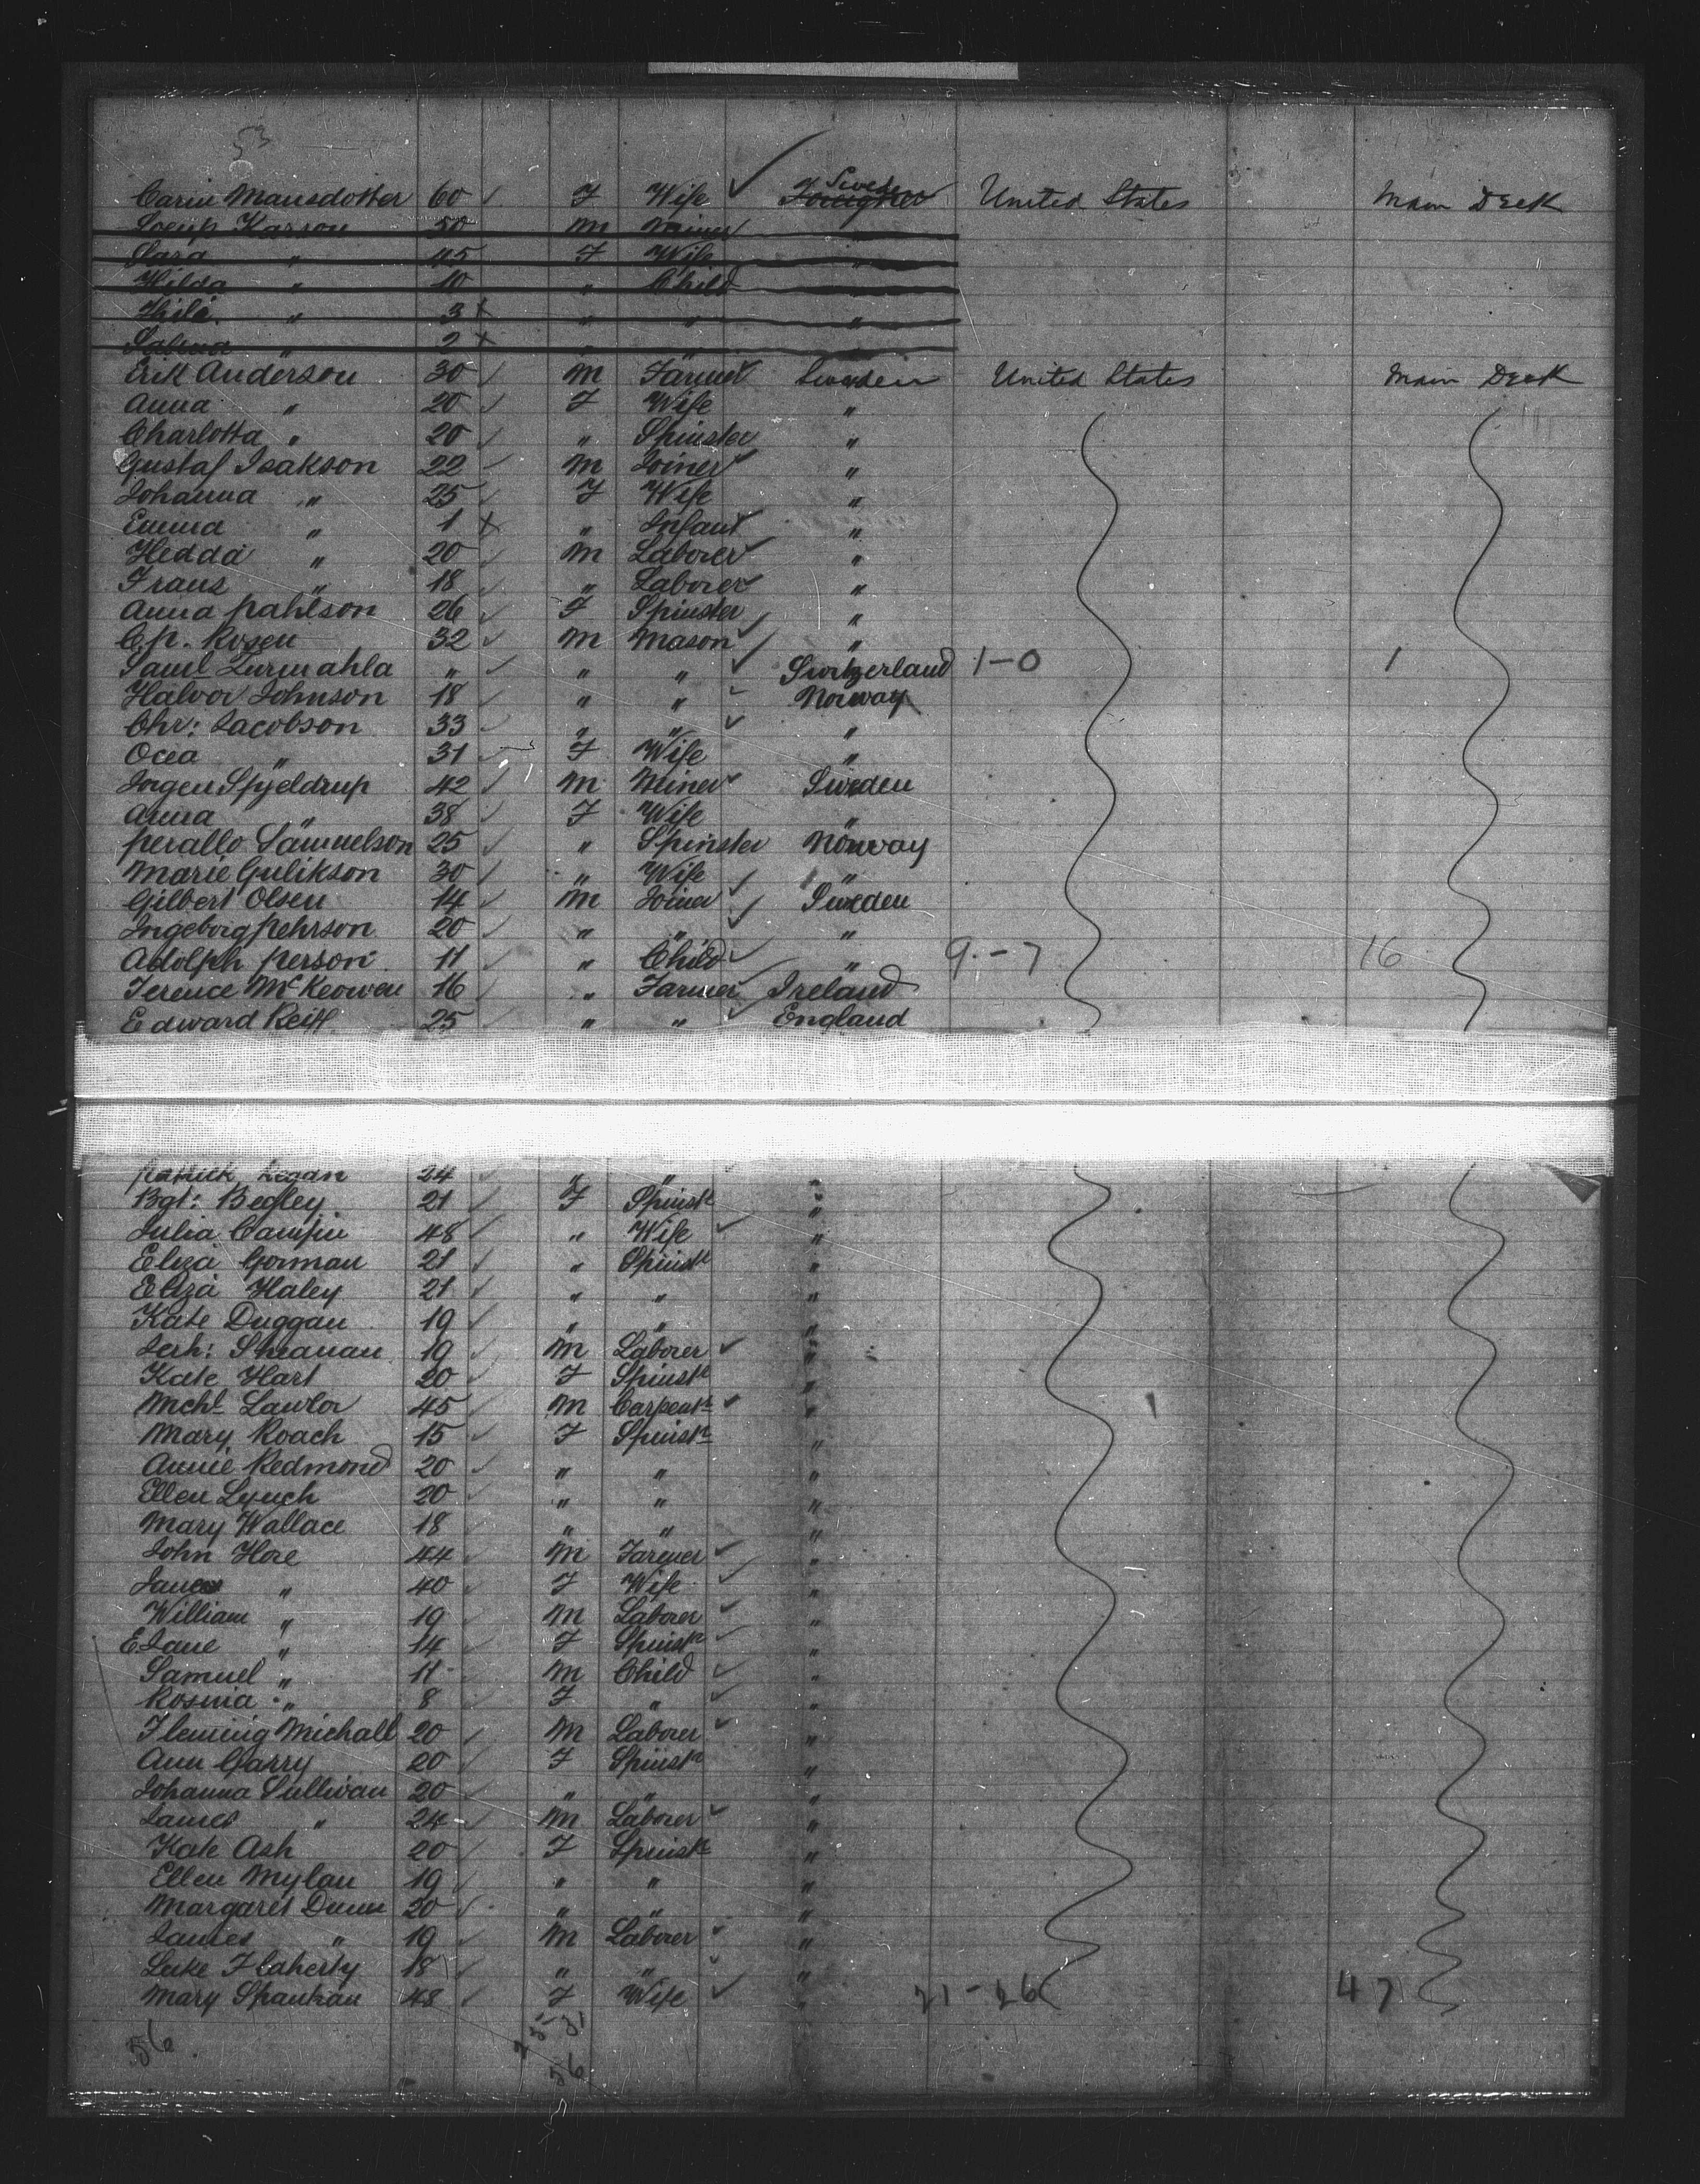 53
Carin Mansdotter 60 ✓ F Wife ✓ Foreigner Sweden United States Main Deck
Karson 50 M Miner
Sara " 45 F Wife "
Hilda " 10 " Child
" 3 x " " "
" 2 x " "
Erik Anderson 30 ✓ M Farmer Sweden United States Main Deck
Anna " 20 ✓ F Wife "
Charlotta " 20 ✓ " Spinster "
Gustaf Isakson 22 ✓ M Joiner "
Johanna " 25 ✓ F Wife "
Emma " 1 x " Infant "
Hedda " 20 ✓ M Laborer "
Frans " 18 ✓ " Laborer "
Anna Pahlson 26 ✓ F Spinster "
C. P. Rosen 32 ✓ M Mason "
Saml " ✓ " " Switzerland 1-0 1
Halvor Johnson 18 ✓ " " Norway
Chr: Jacobson 33 ✓ " " "
Ocea " 31 ✓ F Wife "
Jorgen Spjeldrup 42 ✓ M Miner Sweden
Anna " 38 ✓ F Wife "
Samuelson 25 ✓ " Spinster Norway
Marie Gulikson 30 ✓ " Wife "
Gilbert Olsen 14 ✓ M Joiner Sweden
Ingeborg Pehrson 20 ✓ " " "
Adolph Person 11 ✓ " Child " 9-7 16
Terence McKeowen 16 ✓ " Farmer Ireland
Edward Reiff 25 ✓ " " England
Patrick Regan 24 ✓ " " "
Bgt: Begley 21 ✓ F Spinsr "
Julia 48 ✓ " Wife ✓ "
Eliza Gorman 21 ✓ " Spinsr "
Eliza Haley 21 ✓ " " "
Kate Duggan 19 ✓ " " "
Jerh: Shranan 19 ✓ M Laborer ✓ "
Kate Hart 20 ✓ F Spinsr "
Mchl Lawlor 45 ✓ M Carpentr ✓ "
Mary Roach 15 ✓ F Spinsr "
Annie Redmond 20 ✓ " " "
Ellen Lynch 20 ✓ " " "
Mary Wallace 18 ✓ " " "
John Hore 44 ✓ M Farmer ✓ "
Jane " 40 ✓ F Wife ✓ "
William " 19 ✓ M Laborer ✓ "
E Jane " 14 ✓ F Spinsr ✓ "
Samuel " 11 M Child ✓ "
Rosina " 8 F " ✓ "
Fleming Michall 20 ✓ M Laborer ✓ "
Ann Garry 20 ✓ F Spinsr "
Johanna Sullivan 20 ✓ " " "
James " 24 ✓ M Laborer ✓ "
Kate Ash 20 ✓ F Spinsr "
Ellen Mylan 19 ✓ " " "
Margaret Dunn 20 ✓ " " "
James " 19 ✓ M Laborer ✓ "
Luke Flaherty 18 ✓ " " ✓ "
Mary 48 ✓ F Wife ✓ " 21-26 47
56 25 31
56